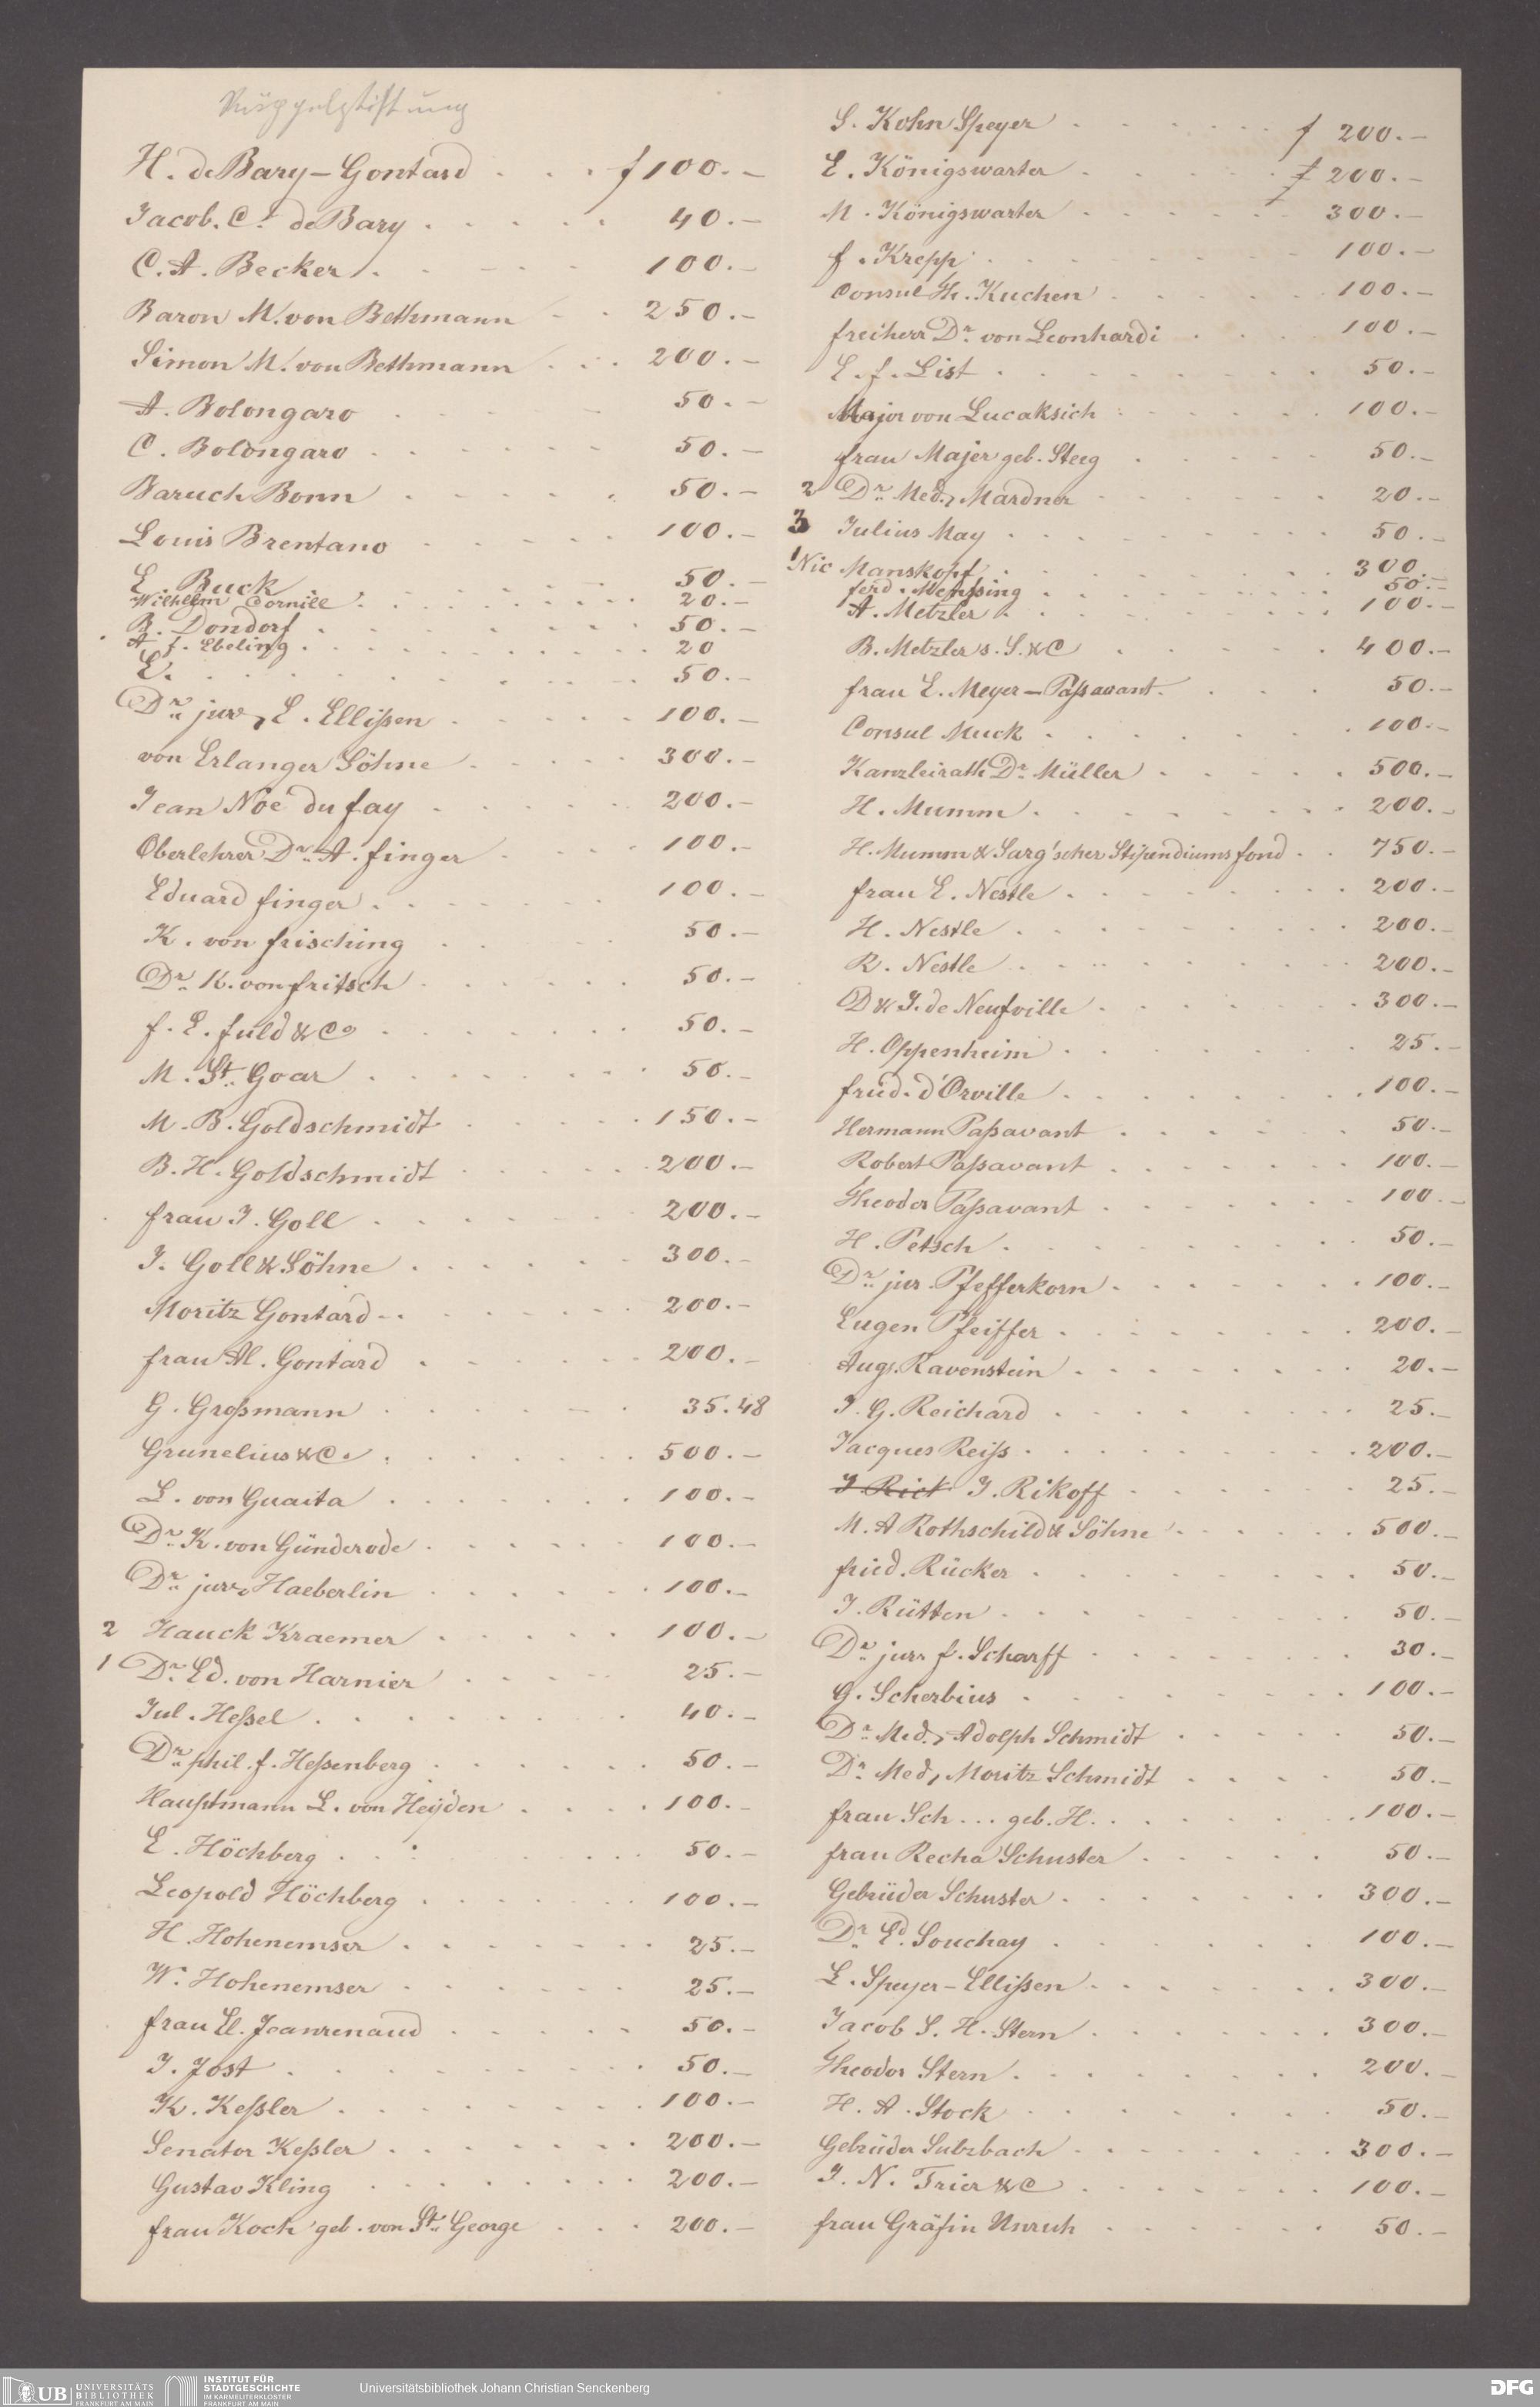 Rüppelstiftung
H. de Bary-Gontard . . . f 100.-
Jacob. C. de Bary . . . . . 40.-
C. A. Becker . . . . . 100.-
Baron M. von Bethmann . . 250.-
Simon M. von Bethmann . . . 200.-
A. Bolongaro . . . . . 50.-
C. Bolongaro . . . . . . 50.-
Baruch Bonn . . . . . 50.-
Louis Brentano . . . . . 100.-
E. Buck . . . . . . 50.-
Wilhelm Cornill . . . . . . . . 20.-
B. Dondorf . . . . . . . 50.-
A. f. Ebeling . . . . . . . . . 20
E. . . . . . . . . 50.-
Dr. jur, L. Ellißen . . . . . 100.-
von Erlanger Söhne . . . . . 300.-
Jean Nóe du fay . . . . . 200.-
Oberlehrer Dr. A. finger . . . . 100.-
Eduard finger . . . . . . 100.-
K. von frisching . . . . 50.-
Dr. K. von fritsch . . . . . . 50.-
f. E. fuld & Co . . . . . . 50.-
M. St. Goar . . . . . . . 50.-
M. B. Goldschmidt . . . . . 150.-
B. H. Goldschmidt . . . . . 200.-
frau J. Goll . . . . . . 200.-
J. Goll & Söhne . . . . . . 300.-
Moritz Gontard . . . . . . . 200.-
frau Al. Gontard . . . . . . 200.-
G. Großmann . . . . . . 35.48
Grunelius & C. . . . . . . . 500.-
L. von Guaita . . . . . . . 100.-
Dr. K. von Günderode . . . . . . 100.-
Dr. jur. Haeberlin . . . . . . 100.-
2 Hauck Kraemer . . . . . 100.-
1 Dr. Ed. von Harnier . . . . 25.-
Jul. Heßel . . . . . . . 40.-
Dr. phil. f. Heßenberg . . . . . . 50.-
Hauptmann L. von Heÿden . . . . 100.-
E. Höchberg . . . . . . 50.-
Leopold Höchberg . . . . . . 100.-
H. Hohenemser . . . . . . . 25.-
W. Hohenemser . . . . . . 25.-
frau El. Jeanrenaud . . . . . 50.-
J. Jost . . . . . . . . 50.-
K. Keßler . . . . . . . . 100.-
Senator Keßler . . . . . . . 200.-
Gustav Kling . . . . . . . 200.-
frau Koch geb. von St. George . . . 200.-
S. Kohn Speyer . . . . . . f 200.-
E. Königswarter . . . . . f 200.-
M. Königswarter . . . . . . 300.-
f. Krepp . . . . . . . . 100.-
Consul Th. Kuchen . . . . . . 100.-
freiherr Dr. von Leonhardi . . . . 100.-
E. f. List . . . . . . . . 50.-
Major von Lucaksich . . . . . . 100.-
frau Majer geb. Steeg . . . . . 50.-
2 Dr. Med, Mardner . . . . . . 20.-
3 Julius May . . . . . . . . 50.-
1 Nic Manskopf . . . . . . . . 300.-
ferd. Menssing . . . . . . . 50.-
A. Metzler . . . . . . . . 100.-
B. Metzler s. S. & C . . . . . 400.-
frau E. Meyer-Passavant . . . . 50.-
Consul Muck . . . . . . . 100.-
Kanzleirath Dr. Müller . . . . . 500.-
H. Mumm . . . . . . . . 200.-
H. Mumm & Sarg'scher Stipendiumsfond . . 750.-
frau E. Nestle . . . . . . . . 200.-
H. Nestle . . . . . . . . . 200.-
R. Nestle . . . . . . . . . 200.-
D & J. de Neufville . . . . . . . 300.-
H. Oppenheim . . . . . . . . 25.-
fried. d'Orville . . . . . . . . 100.-
Hermann Paßavant . . . . . 50.-
Robert Paßavant . . . . . . . 100.-
Theodor Paßavant . . . . . . . 100.-
H. Petsch . . . . . . . . . 50.-
Dr. jur. Pfefferkorn . . . . . . . 100.-
Eugen Pfeiffer . . . . . . . . 200.-
Aug. Ravenstein . . . . . . . . 20.-
J. G. Reichard . . . . . . . . 25.-
Jacques Reiss . . . . . . . . . 200.-
J. Rick J. Rikoff . . . . . . 25.-
M. A Rothschild & Söhne . . . . . . 500.-
fried. Rücker . . . . . . . . 50.-
J. Rütten . . . . . . . . . 50.-
Dr. jur. f. Scharff . . . . . . . 30.-
G. Scherbius . . . . . . . . 100.-
Dr. Med, Adolph Schmidt . . . . . 50.-
Dr. Med, Moritz Schmidt . . . . 50.-
frau Sch... geb. H. . . . . . . . 100.-
frau Recha Schuster . . . . . 50.-
Gebrüder Schuster . . . . . . . 300.-
Dr. Ed. Souchay . . . . . . 100.-
L. Speyer-Ellißen . . . . . . . 300.-
Jacob S. H. Stern . . . . . . . 300.-
Theodor Stern . . . . . . . . 200.-
H. A. Stock . . . . . . . 50.-
Gebrüder Sulzbach . . . . . . . 300.-
J. N. Trier & C . . . . . . . 100.-
frau Gräfin Unruh . . . . . . 50.-
UB UNIVERSITÄTS
BIBLIOTHEK
FRANKFURT AM MAIN
INSTITUT FÜR
STADTGESCHICHTE
IM KARMELITERKLOSTER
FRANKFURT AM MAIN
Universitätsbibliothek Johann Christian Senckenberg
DFG